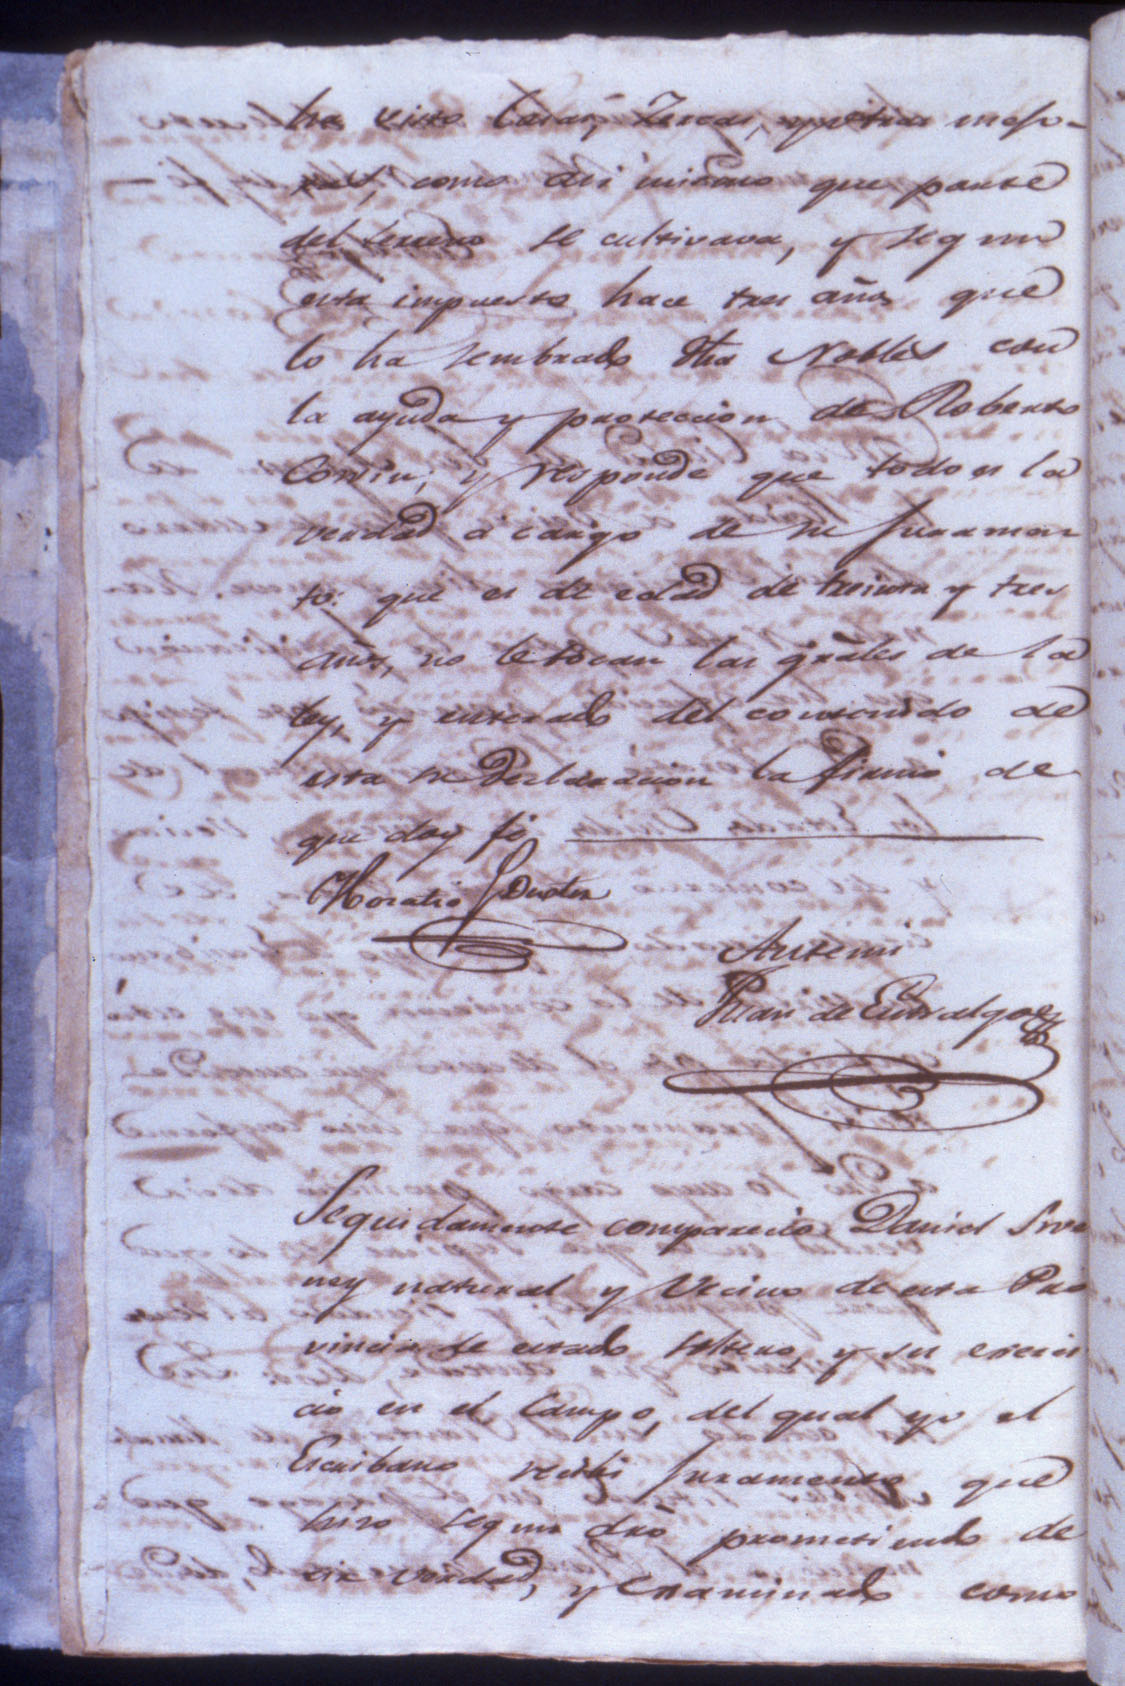 ha visto Casas, Zercas, y otras mejo-
ras, como asi mismo que parte
del terreno se cultivava, y segun
esta impuesto hace tres años que
lo ha sembrado dha Nobles con
la ayuda y proteccion de Roberto
y responde que todo es la
verdad à cargo de su juramen
to: que es de edad de treinta y tres
años, no le tocan las grales de la
ley, y enterado del contenido de
esta su declaracion la firmó de
que doy fé
Horatio S Dexter
Antemi
Juan de Entralgo
Seguidamente comparecio Daniel Swe
ney natural y Vecino de esta Pro
vincia de estado soltero, y su exerci
cio en el Campo, del qual yo el
Escribano recibi juramento que
hizo segun dro prometiendo de
cir verdad, y examinado como